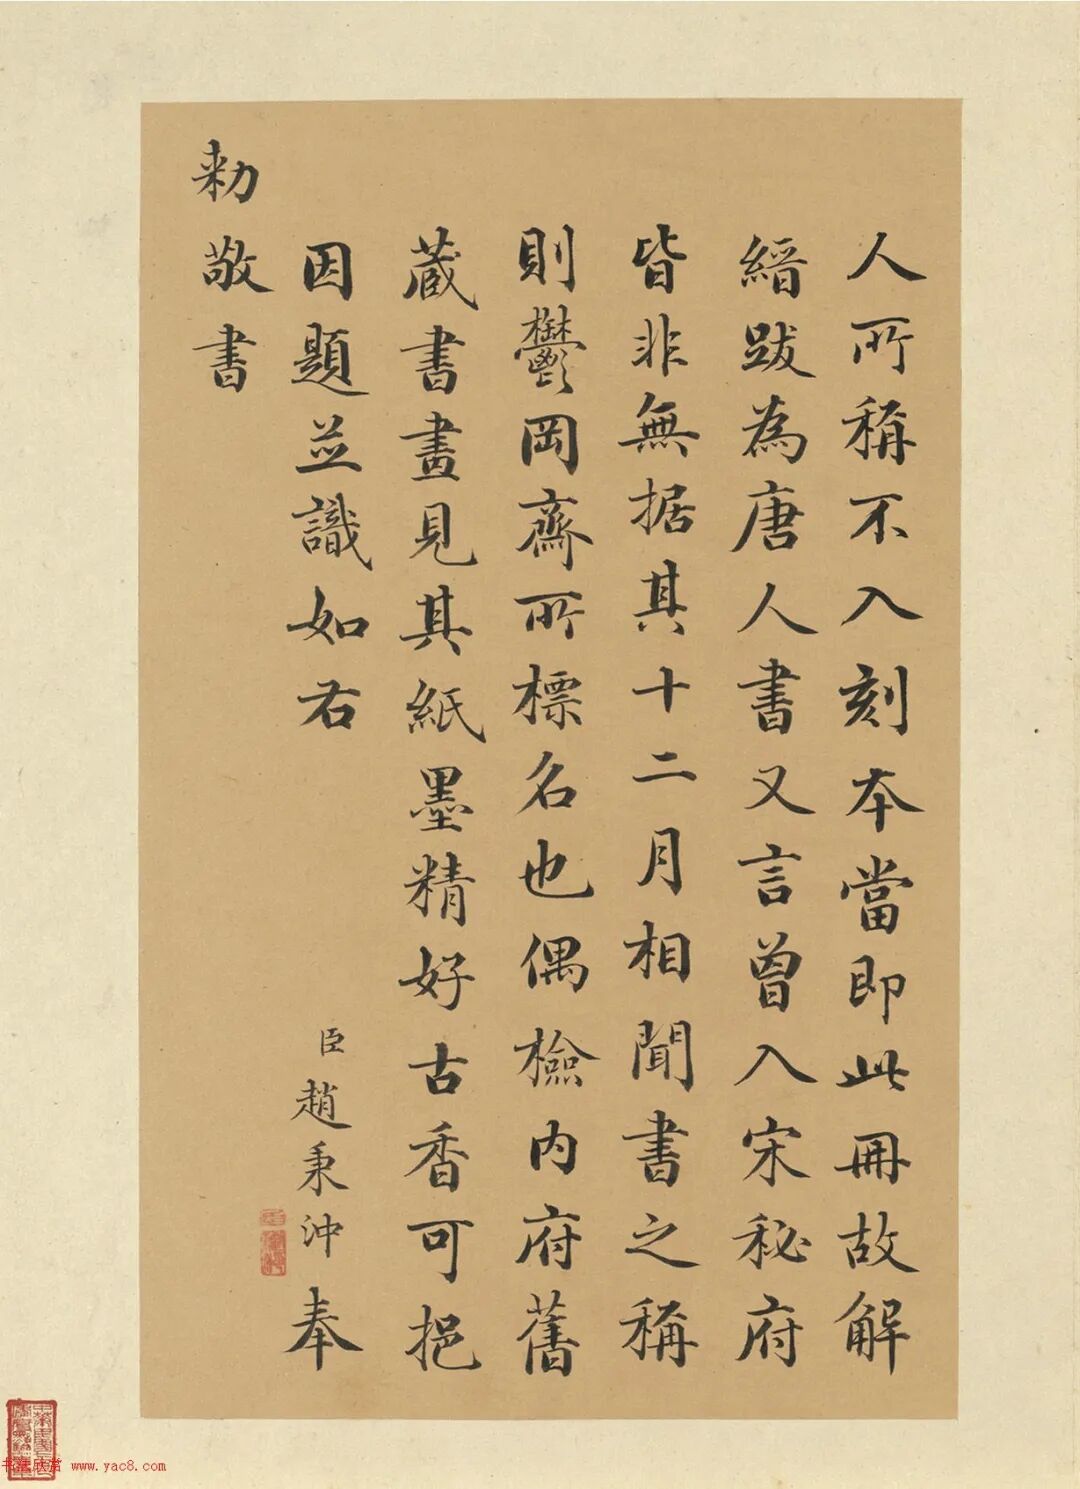 人所稱不入刻本當即此冊故解
縉跋為唐人書又言曾入宋秘府
皆非無据其十二月相聞書之稱
則鬱岡齋所標名也偶檢內府舊
蔵書畫見其紙墨精好古香可挹
因題並識如右
臣趙秉沖奉
勑敬書
书法欣赏 www.yac8.com